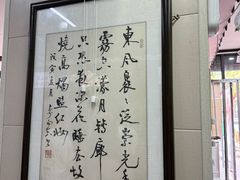 東風裊裊泛崇光香
霧空濛月轉廊
只恐夜深花睡去故
燒高燭照紅妝